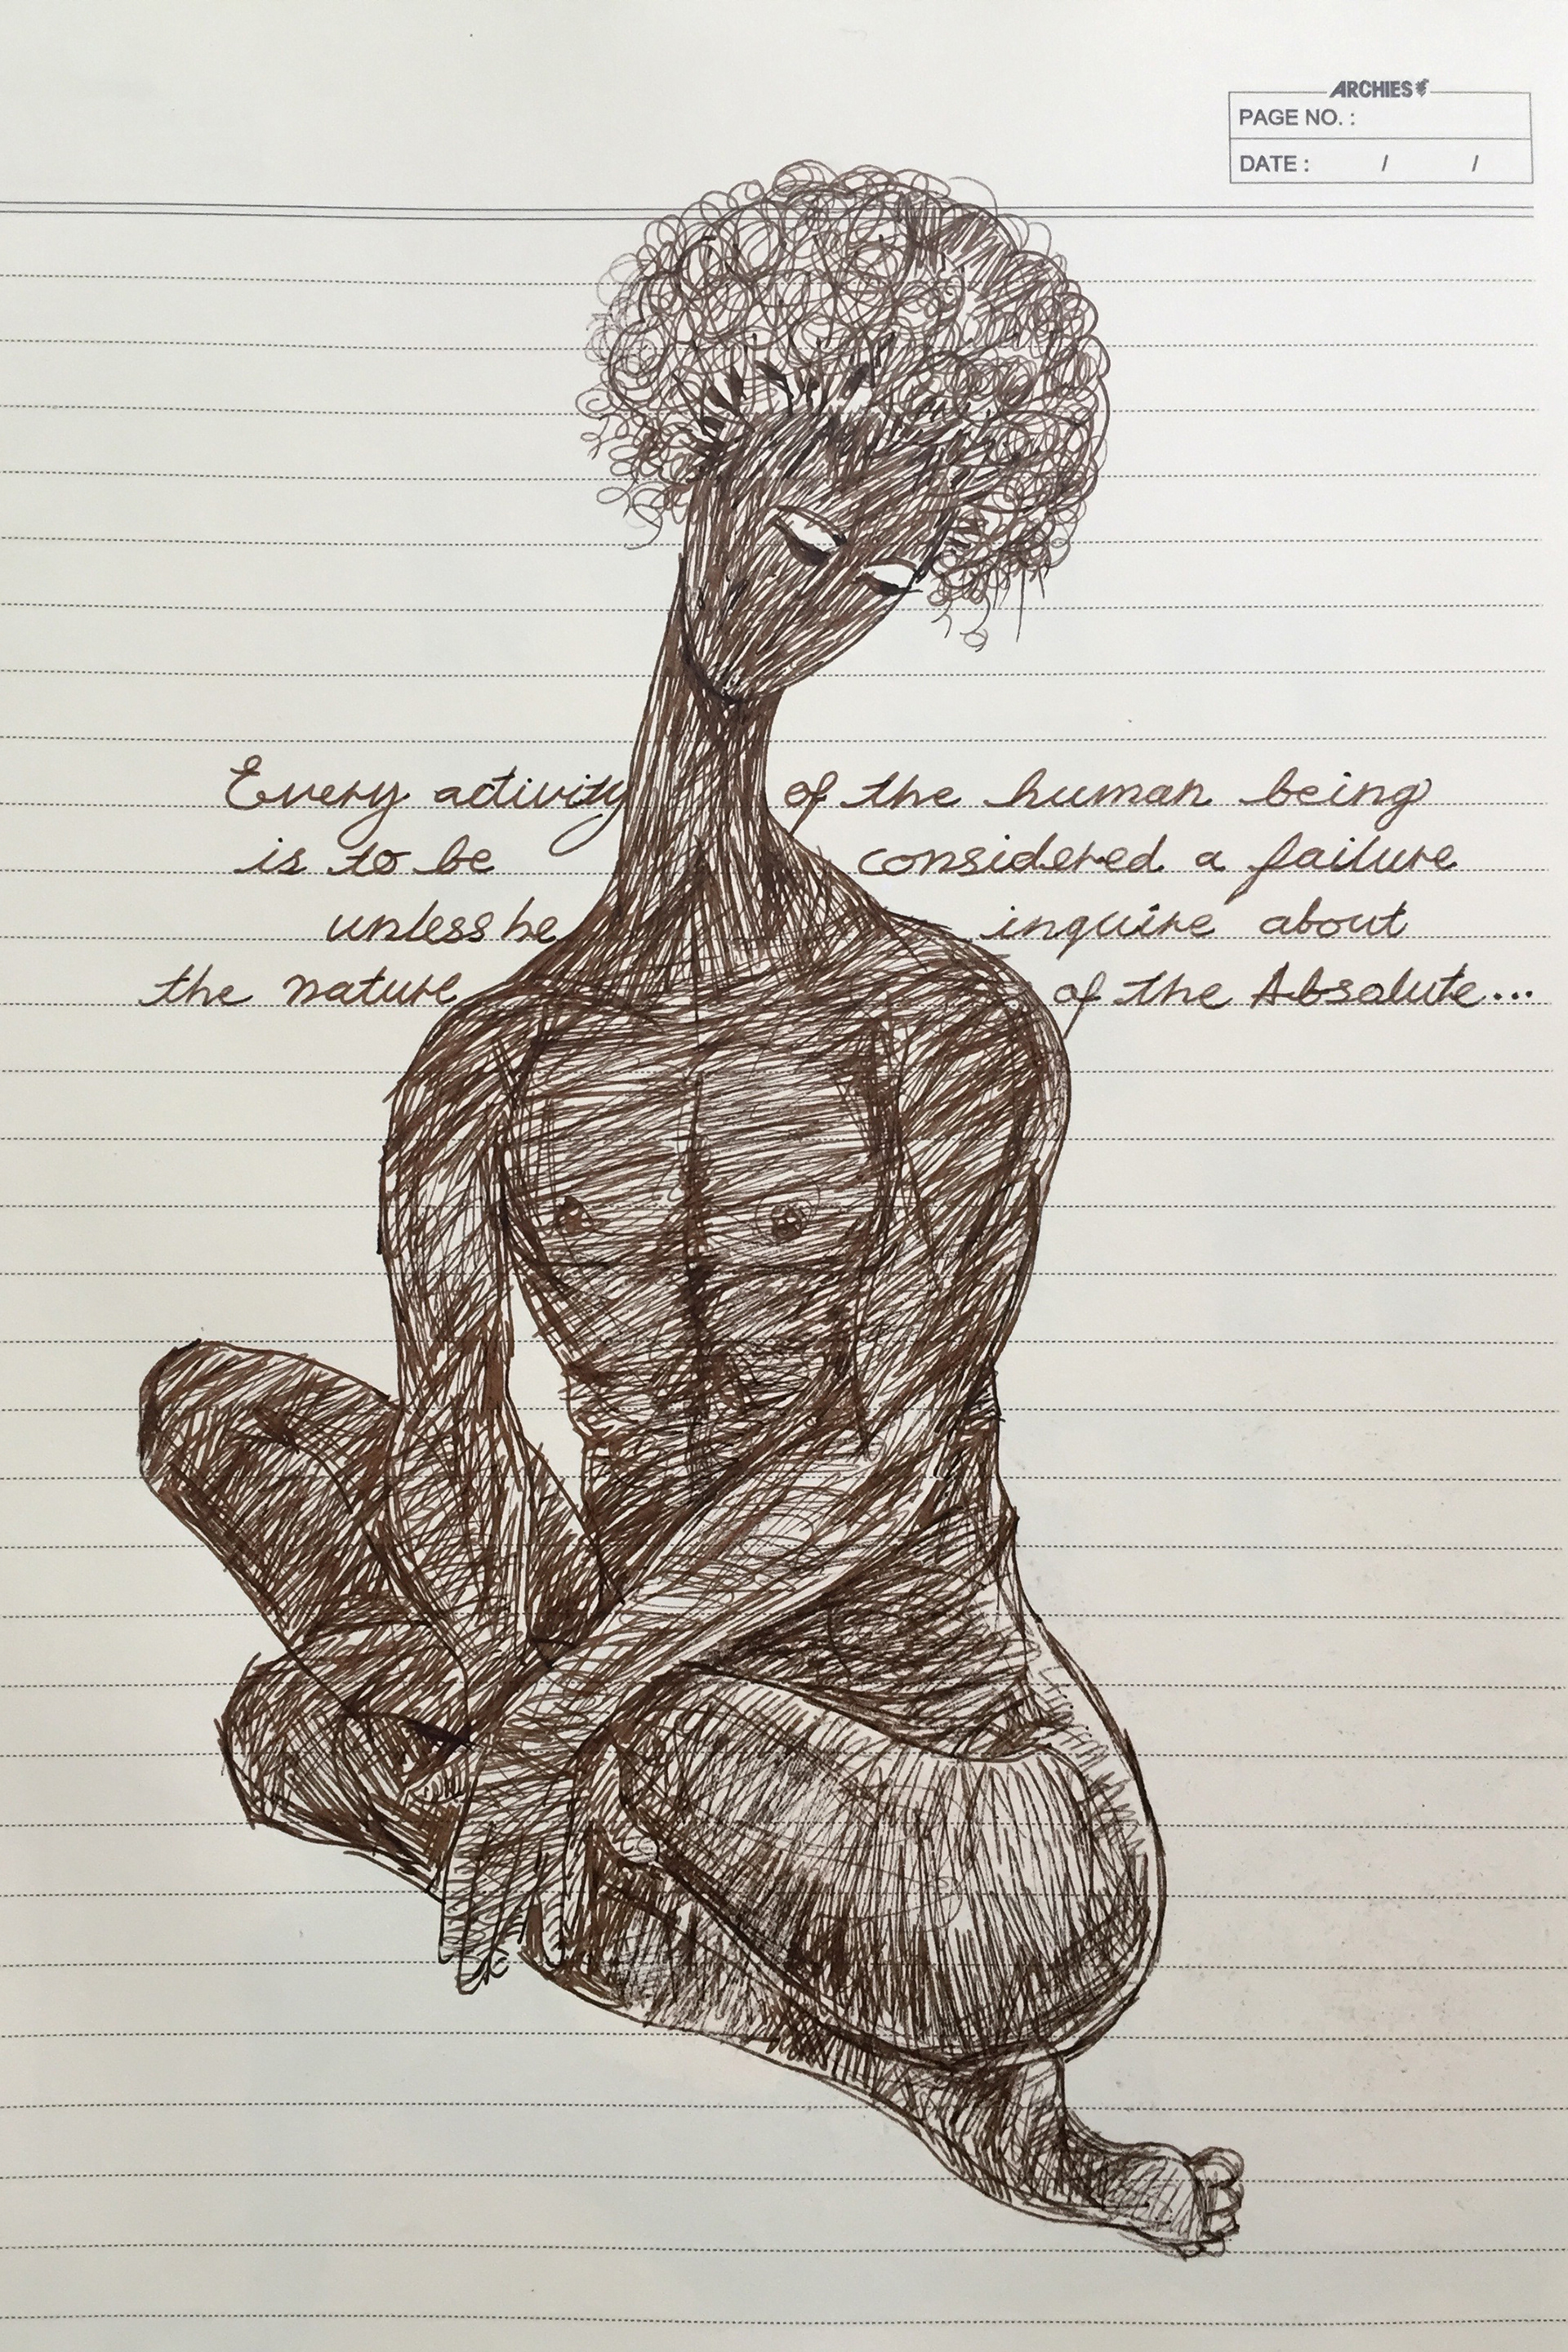 ARCHIES
PAGE NO. :
DATE : / /
Every activity of the human being
is to be considered a failure
unless he inquire about
the nature of the Absolute...